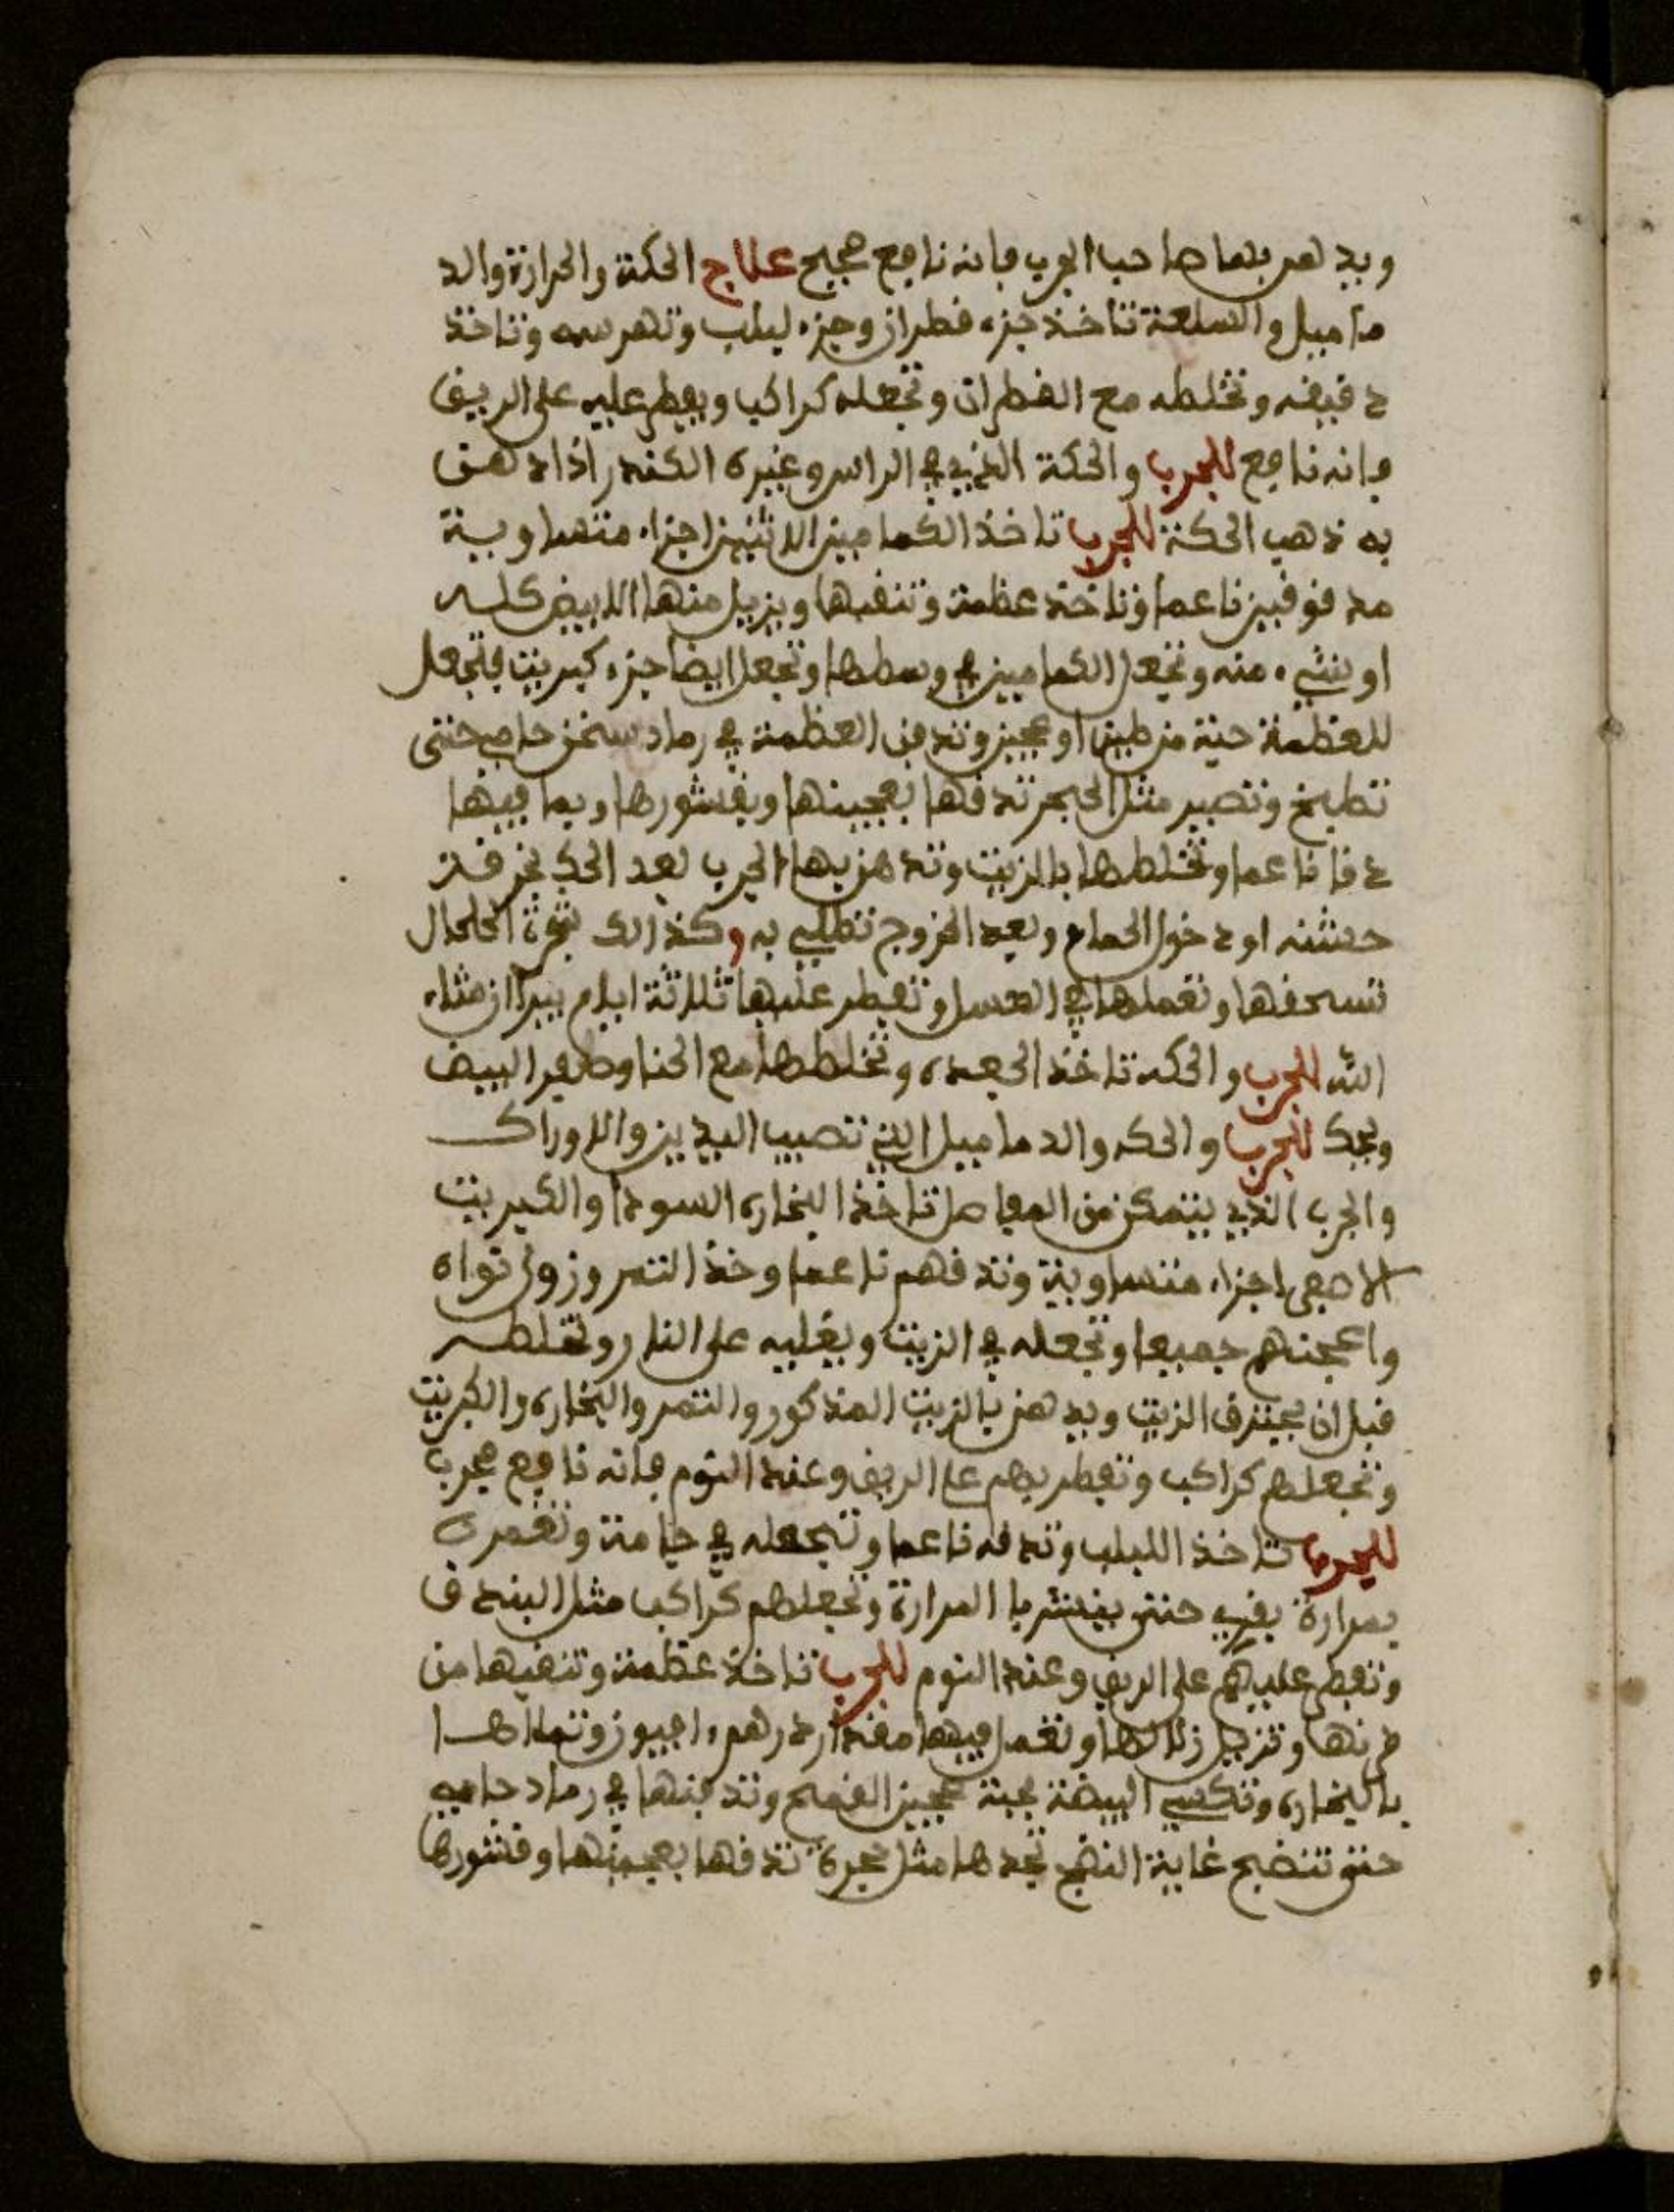 ويدهن بهما صاحب الجرب فانه نافع صحيح علاج الحكة والحرارة والد
ماميل والسلعة تاخذ جزء قطران وجزء لبلب وتهرسه وتاخذ
دقيقه وتخلطه مع القطران وتجعله كراكب ويفطر عليه على الريق
فانه نافع للجرب والحكة الذي في الراس وغيره الكندر اذا دهن
به ذهب الحكة للجرب تاخذ الكماميز الاثنين اجزاء متساوية
مدقوقين ناعما وتاخذ عظمة وتنقبها ويزيل منها الابيض كله
او شيء منه وتجعل الكماميز في وسطها وتجعل ايضا جزء كبريت فتجعل
للعظمة جبة من طين او عجين وتدفن العظمة في رماد سخن حامي حتى
تطبخ وتصير مثل الحجر تدقها بعجينها وبقشورها وبما فيها
دقا ناعما وتخلطها بالزيت وتدهن بها الجرب بعد الحك بخرقة
حشنه او دخول الحمام وبعد الخروج تطلي به وكذلك شجرة الحلحال
تسحقها وتعملها في العسل وتفطر عليها ثلاثة ايام يبرا ان شاء
الله للجرب والحكه تاخذ الجعده وتخلطها مع الحنا وصفير البيض
ويحك للجرب والحكه والدماميل التي تصيب اليدين والاوراك
والجرب الذي يتمكن من المفاصل تاخذ البخاره السودا والكبريت
الاصفى اجزاء متساوية وتدقهم ناعما وخذ التمر وزول نواه
واعجنهم جميعا وتجعله في الزيت ويغليه على النار وتخلطه
قبل ان يحترق الزيت ويدهن بالزيت المذكور والتمر والبخاره والكبريت
وتجعلهم كراكب وتفطر بهم على الريق وعند النوم فانه نافع مجرب
للجرب تاخذ اللبلب وتدقه ناعما وتجعله في جامة وتغمره
بمرارة بقري حتى يتشربا المرارة وتجعلهم كراكب مثل البندق
وتفطر عليهم على الريق وعند النوم للجرب تاخذ عظمة وتنقبها من
دنها وتزيل زلالها وتعمل فيها مقدار درهم افيون وتملاها
بالبخاره وتكسي البيضة بجبة عجين القمح وتدفنها في رماد حامي
حتى تنضج غاية النضج تجدها مثل حجرة تدقها بعجينها وقشورها